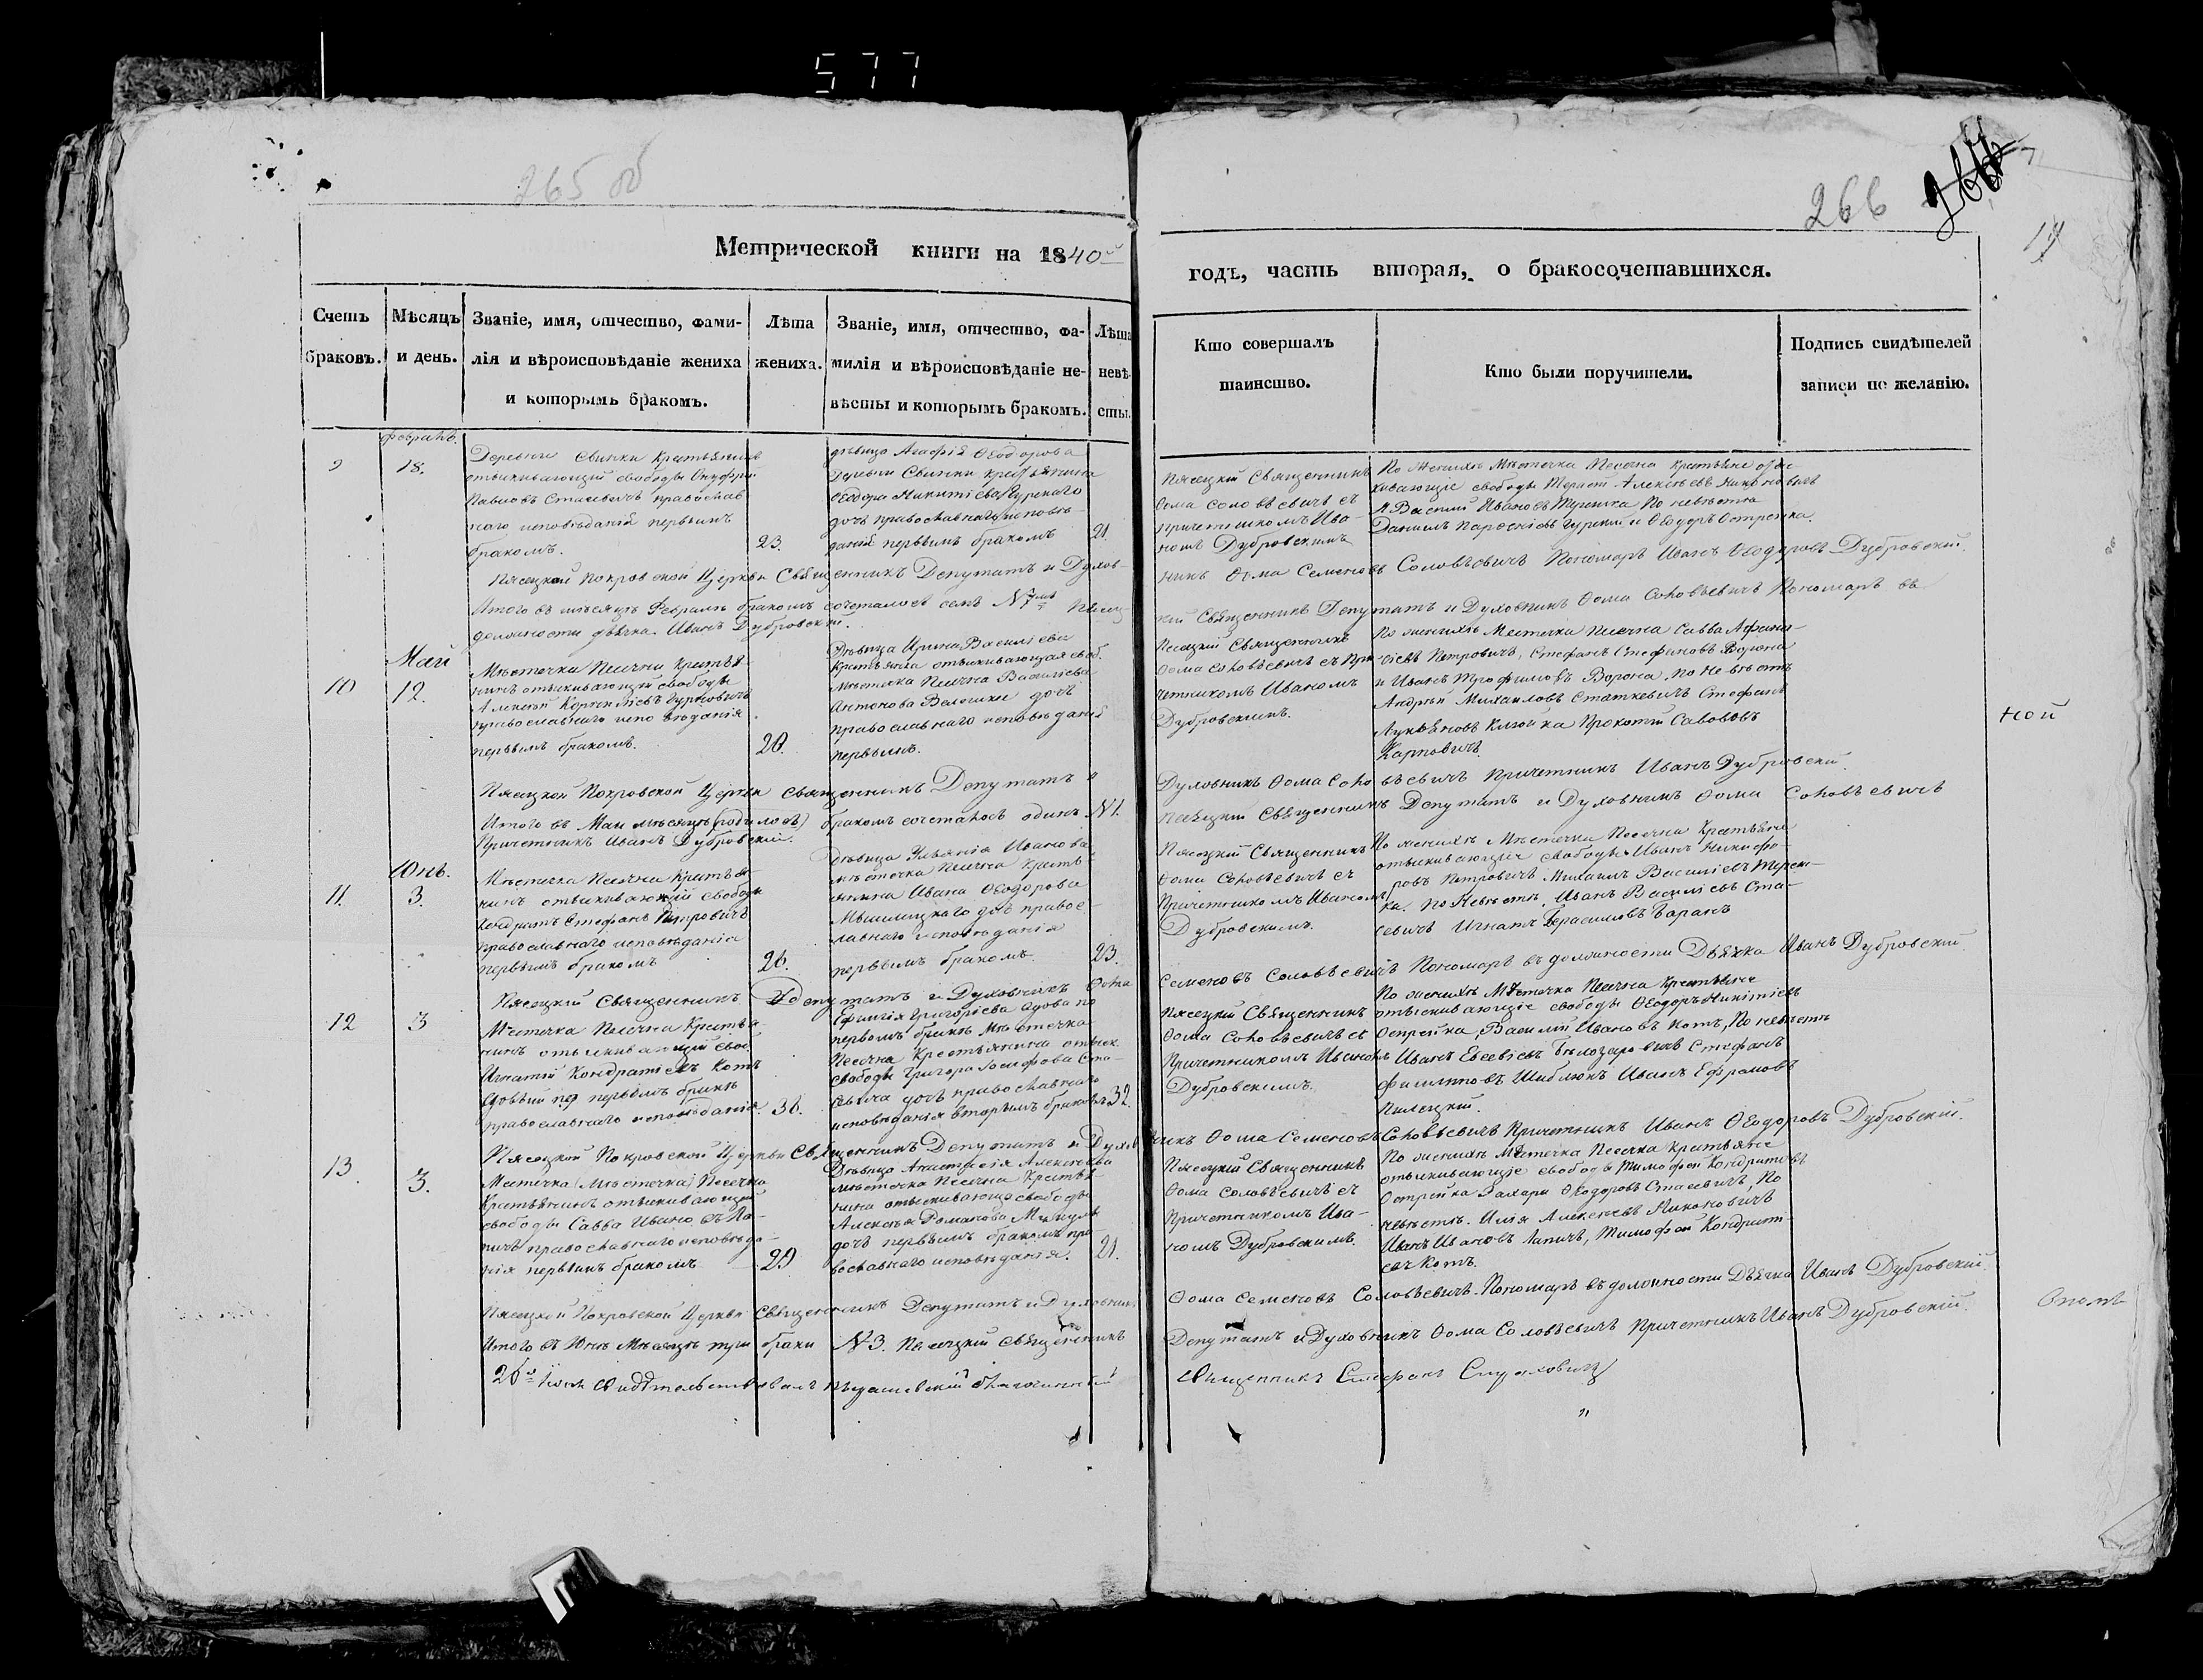 577
265 об
266
Метрической книги на 1840й
годъ, часть вторая, о бракосочетавшихся.
Счетъ браковъ.
Мѣсяцъ и день.
Званіе, имя, отчество, фами-
лія и вѣроисповѣданіе жениха
и которымъ бракомъ.
Лѣта
жениха.
Званіе, имя, отчество, фа-
милія и вѣроисповѣданіе не-
вѣсты и которымъ бракомъ.
Лѣта
невѣ-
сты.
Кто совершалъ
таинство.
Кто были поручители.
Подпись свидѣтелей
записи по желанію.
9
18.
Деревни Свинки Крестьянинъ
отыскивающій свободы Онуфрій
Павловъ Стасевичъ православ
наго исповѣданія первымъ
бракомъ.
23.
дѣвица Агафія Ѳеодорова
Деревни Свинки Крестьянина
Ѳеодора Никитіева Гурскаго
дочь православнаго исповѣ-
данія первымъ бракомъ
21.
Пясецкій Священникъ
Ѳома Соловьевичъ съ
причетникомъ Ива-
номъ Дубровскимъ
По женихѣ Мѣстечка Песечна Крестьяне оты-
кивающіе свободы Алексѣевъ Никоновичъ
и Василій Ивановъ По невѣстѣ
Даниилъ Гурскій и Ѳеодоръ Острейка.
Пясецкой Покровской Церкви Священникъ Депутатъ и Духов-
никъ Ѳома Семеновъ Соловьевичъ Пономарь Иванъ Ѳеодоровъ Дубровскій.
Итого въ мѣсяцѣ Февралѣ бракомъ сочеталось семь N 7мь
кій Священникъ Депутатъ и Духовникъ Ѳома Соловьевичъ Пономарь въ
должности дьячка Иванъ Дубровскій.
Май
10
12.
Мѣстечка Песечна Крестья
нинъ отыскивающій свободы
Алексѣй Корниліевъ Гуриновичъ
православнаго исповѣданія
первымъ бракомъ.
20.
Дѣвица Ирина Василіева
Крестьянка отыскивающая своб.
Мѣстечка Песечна Василіева
Антонова дочь
православнаго исповѣданія
первымъ.
Песецкій Священникъ
Ѳома Соловьевичъ съ При-
четникомъ Иваномъ
Дубровскимъ.
По женихѣ Мѣстечка Песечна Савва Афана-
сіевъ Петровичъ, Стефанъ Стефановъ Ворона
и Иванъ Трофимовъ Ворона, по Невѣстѣ
Андрей Михаиловъ Статкевичъ Стефанъ
Лукьяновъ Прокопій Савовъ
Карповичъ
ной
Пясецкой Покровской Церкви Священникъ Депутатъ и
Духовникъ Ѳома Соловьевичъ Причетникъ Иванъ Дубровскій.
Итого въ Маи мѣсяцѣ (родилось) бракомъ сочеталось одинъ N1.
Песецкій Священникъ Депутатъ и Духовникъ Ѳома Соловьевичъ
Причетникъ Иванъ Дубровскій.
Юнь.
11.
3.
Мѣстечка Песечна Крестья-
нинъ отыскивающій свободы
Кондратъ Стефанъ Петровичъ
православнаго исповѣданія
первымъ бракомъ
26.
Дѣвица Ульянія Иванова
мѣстечка Песечна Кресть-
янина Ивана Ѳеодорова
дочь правос-
лавнаго исповѣданія
первымъ бракомъ.
23.
Пясецкій Священникъ
Ѳома Соловьевичъ съ
Причетникомъ Иваномъ
Дубровскимъ.
По женихѣ Мѣстечка Песечна Крестьяне
отыскивающіе свободы Иванъ Никифо-
ровъ Петровичъ Михаилъ Василіевъ
ка. По Невѣстѣ, Иванъ Василіевъ Ста-
севичъ Игнатъ Герасимовъ Баранъ
Пясецкій Священникъ Депутатъ и Духовникъ Ѳома
Семеновъ Соловьевичъ Пономарь въ должности Дьячка Иванъ Дубровскій.
12
3
Мѣстечка Песечна Крестья
нинъ отыскивающій своб.
Игнатій Кондратіевъ Котъ
вдовый по первомъ бракѣ
православнаго исповѣданія.
36.
Ефимія Григоріева вдова по
первомъ бракѣ мѣстечка
Песечна Крестьянина отыск
свободы Григора Іосифова
дочь православнаго
исповѣданія вторымъ бракомъ
32.
Пясецкій Священникъ
Ѳома Соловьевичъ съ
Причетникомъ Иваномъ
Дубровскимъ.
По женихѣ Мѣстечка Песечна Крестьяне
отыскивающіе свободы Ѳеодоръ Никитіевъ
Острейка, Василій Ивановъ Котъ, По невѣстѣ
Иванъ Евсевіевъ Бѣлозаровичъ Стефанъ
Филипповъ Шиблюкъ Иванъ Ефремовъ
Пилецкій.
Пясецкой Покровской Церкви Священникъ Депутатъ и Духов
никъ Ѳома Семеновъ Соловьевичъ Причетникъ Иванъ Ѳеодоровъ Дубровскій.
13.
3.
Местечка (Мѣстечка) Песечна
Крестьянинъ отыскивающій
свободы Савва Ивановъ Ла-
пичъ православнаго исповѣда-
нія первымъ бракомъ
29
Дѣвица Анастасія Алексѣева
мѣстечка Песечна Крестья-
нина отыскивающаго свободы
Алексѣя Романова
дочь первымъ бракомъ пра
вославнаго исповѣданія.
21.
Пясецкій Священникъ
Ѳома Соловьевичъ съ
Причетникомъ Ива-
номъ Дубровскимъ.
По женихѣ Мѣстечка Песечна Крестьяне
отыскивающіе свободы Тимофей Кондратовъ
Острейка Захарій Ѳеодоровъ Стасевичъ, По
невѣстѣ. Илія Алексѣевъ Никоновичъ
Иванъ Ивановъ Лапичъ, Тимофей Кондрат-
евъ Котъ.
Пясецкой Покровской Церкви Священникъ Депутатъ и Духовникъ
Ѳома Семеновъ Соловьевичъ. Пономарь въ должности Дьячка Иванъ Дубровскій.
Итого въ Юнѣ Мѣсяцѣ три браки N3. Песецкій Священникъ
Депутатъ и Духовникъ Ѳома Соловьевичъ Причетникъ Иванъ Дубровскій.
свидѣтельствовалъ благочинный
Священникъ